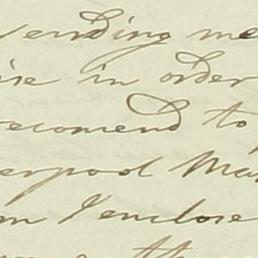 sending me
ise in order
recomend to
erpool Ma
m I enclose